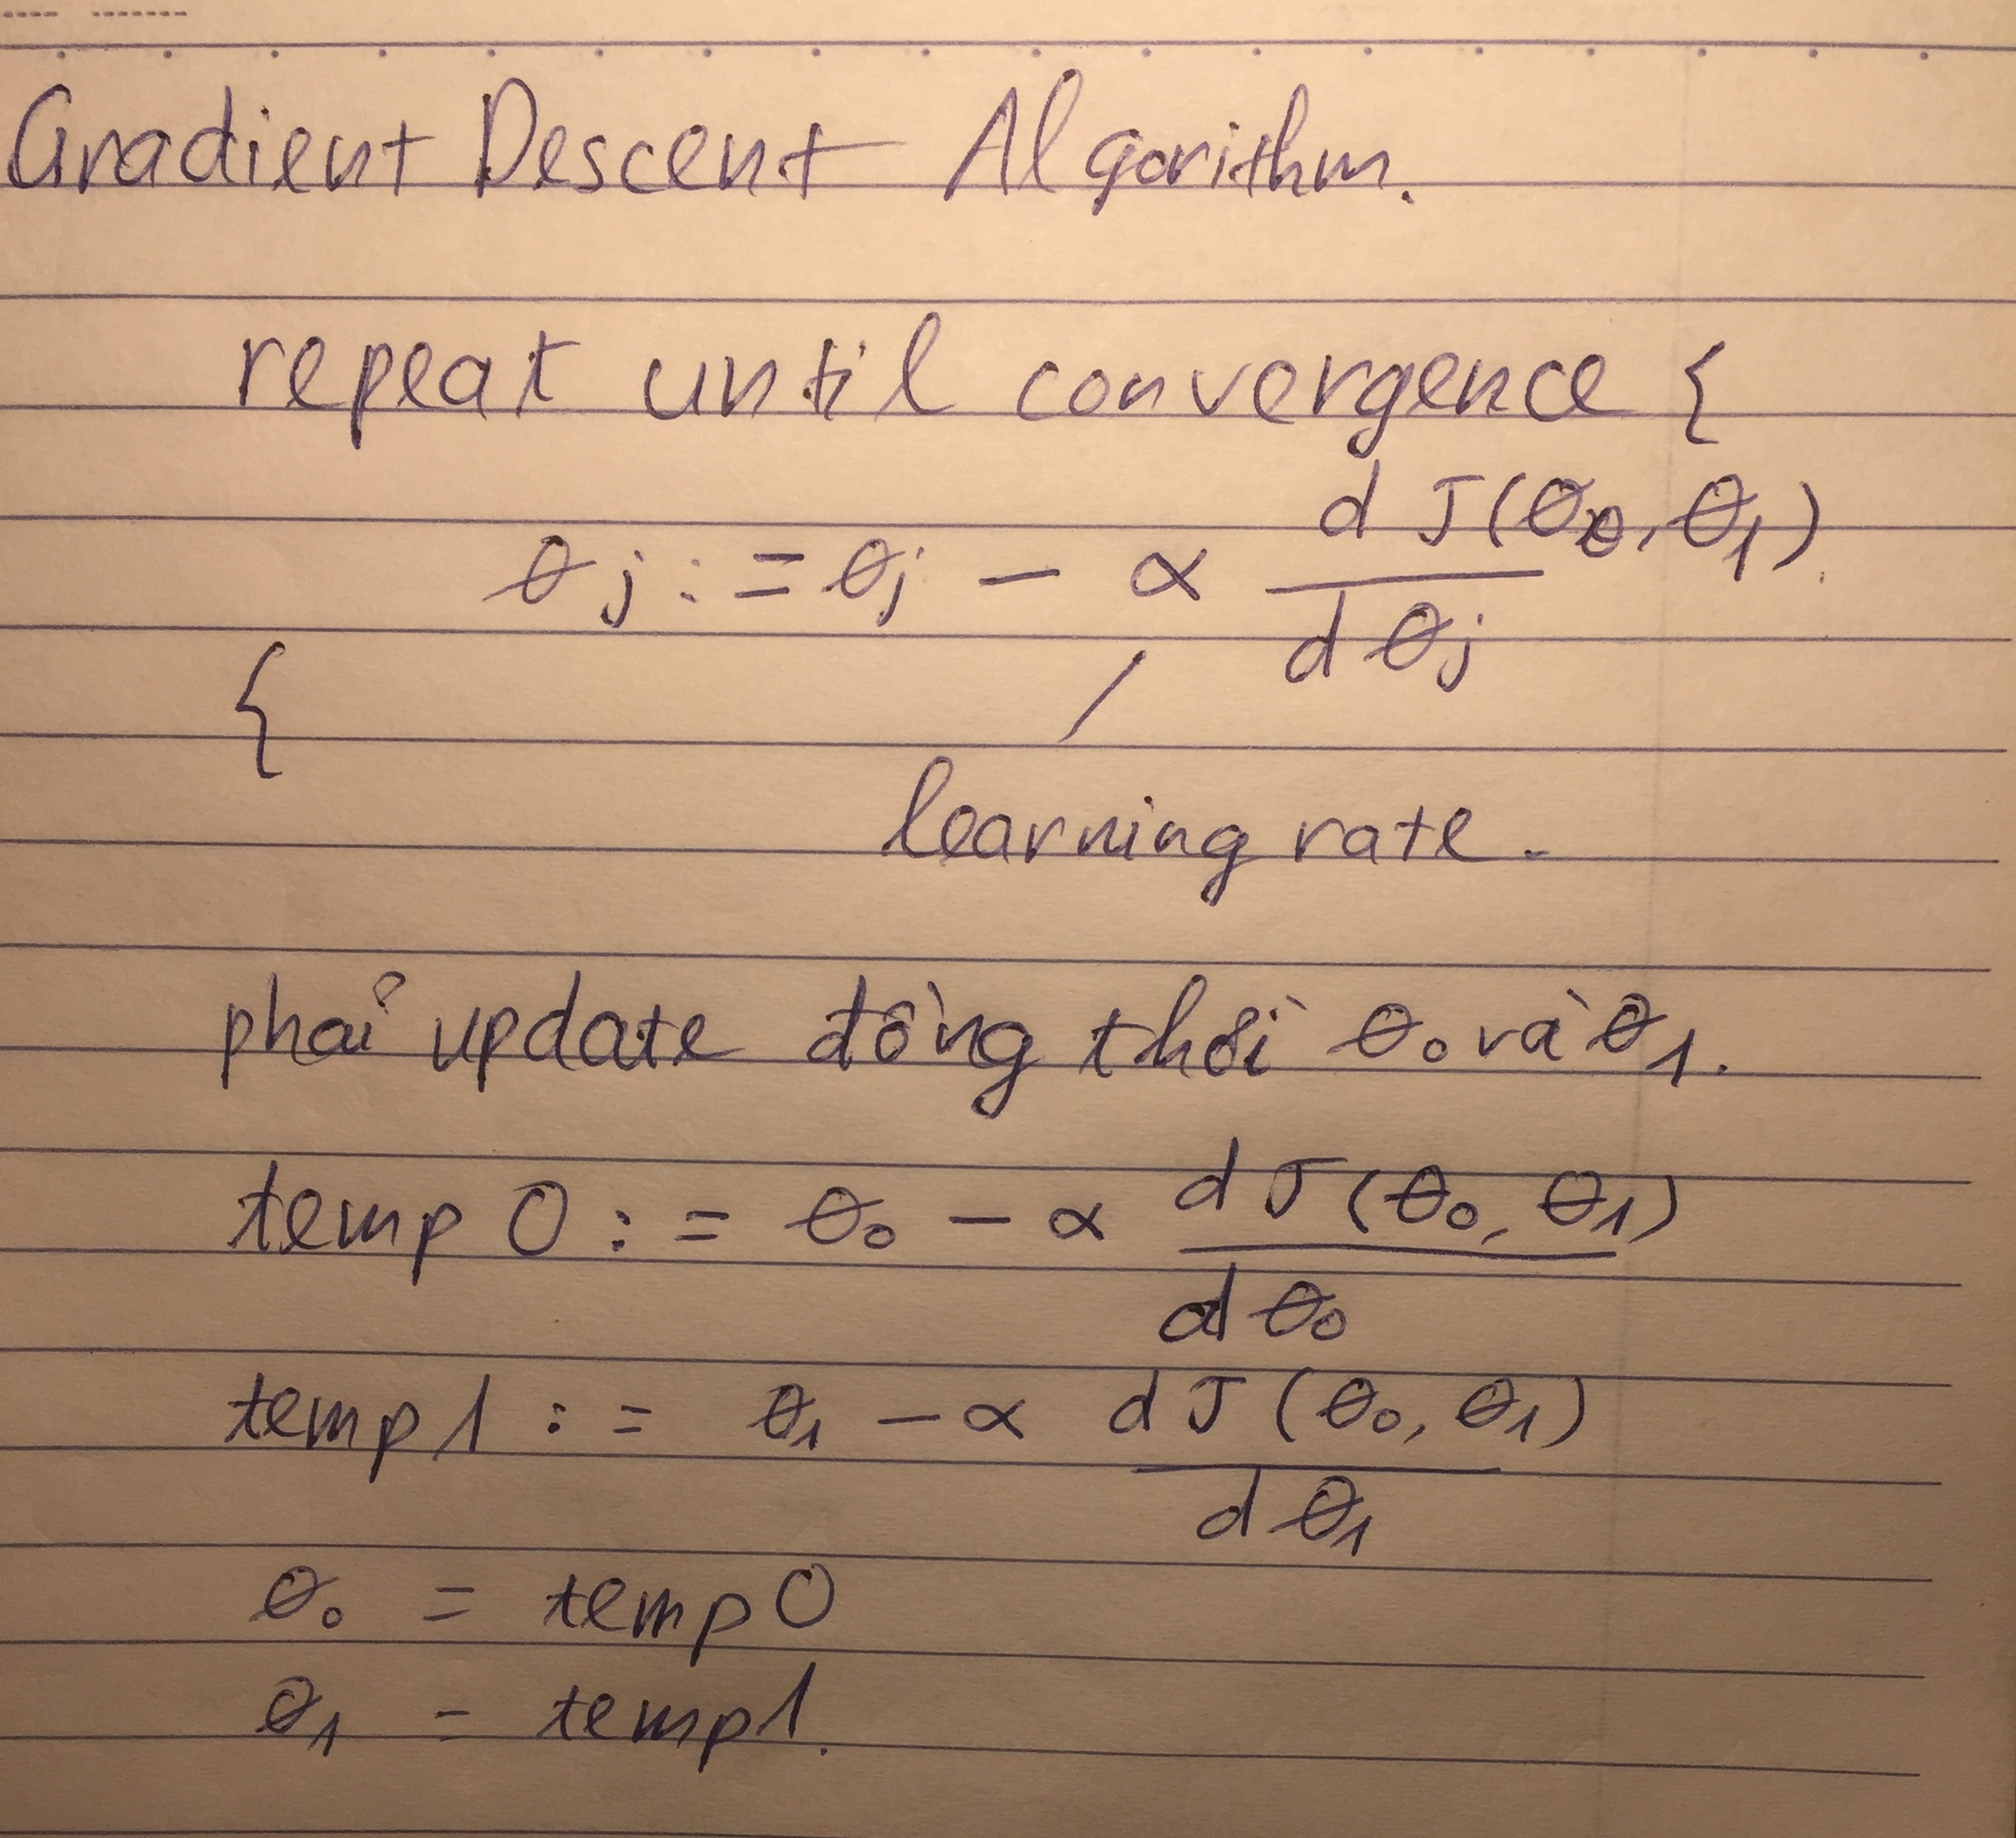 Gradient Descent Algorithm.
repeat until convergence {
θj := θj - α dJ(θ0, θ1) / dθj
{
learning rate.
phải update đồng thời θ0 và θ1.
temp 0 := θ0 - α dJ(θ0, θ1) / dθ0
temp 1 := θ1 - α dJ(θ0, θ1) / dθ1
θ0 = temp 0
θ1 = temp 1.